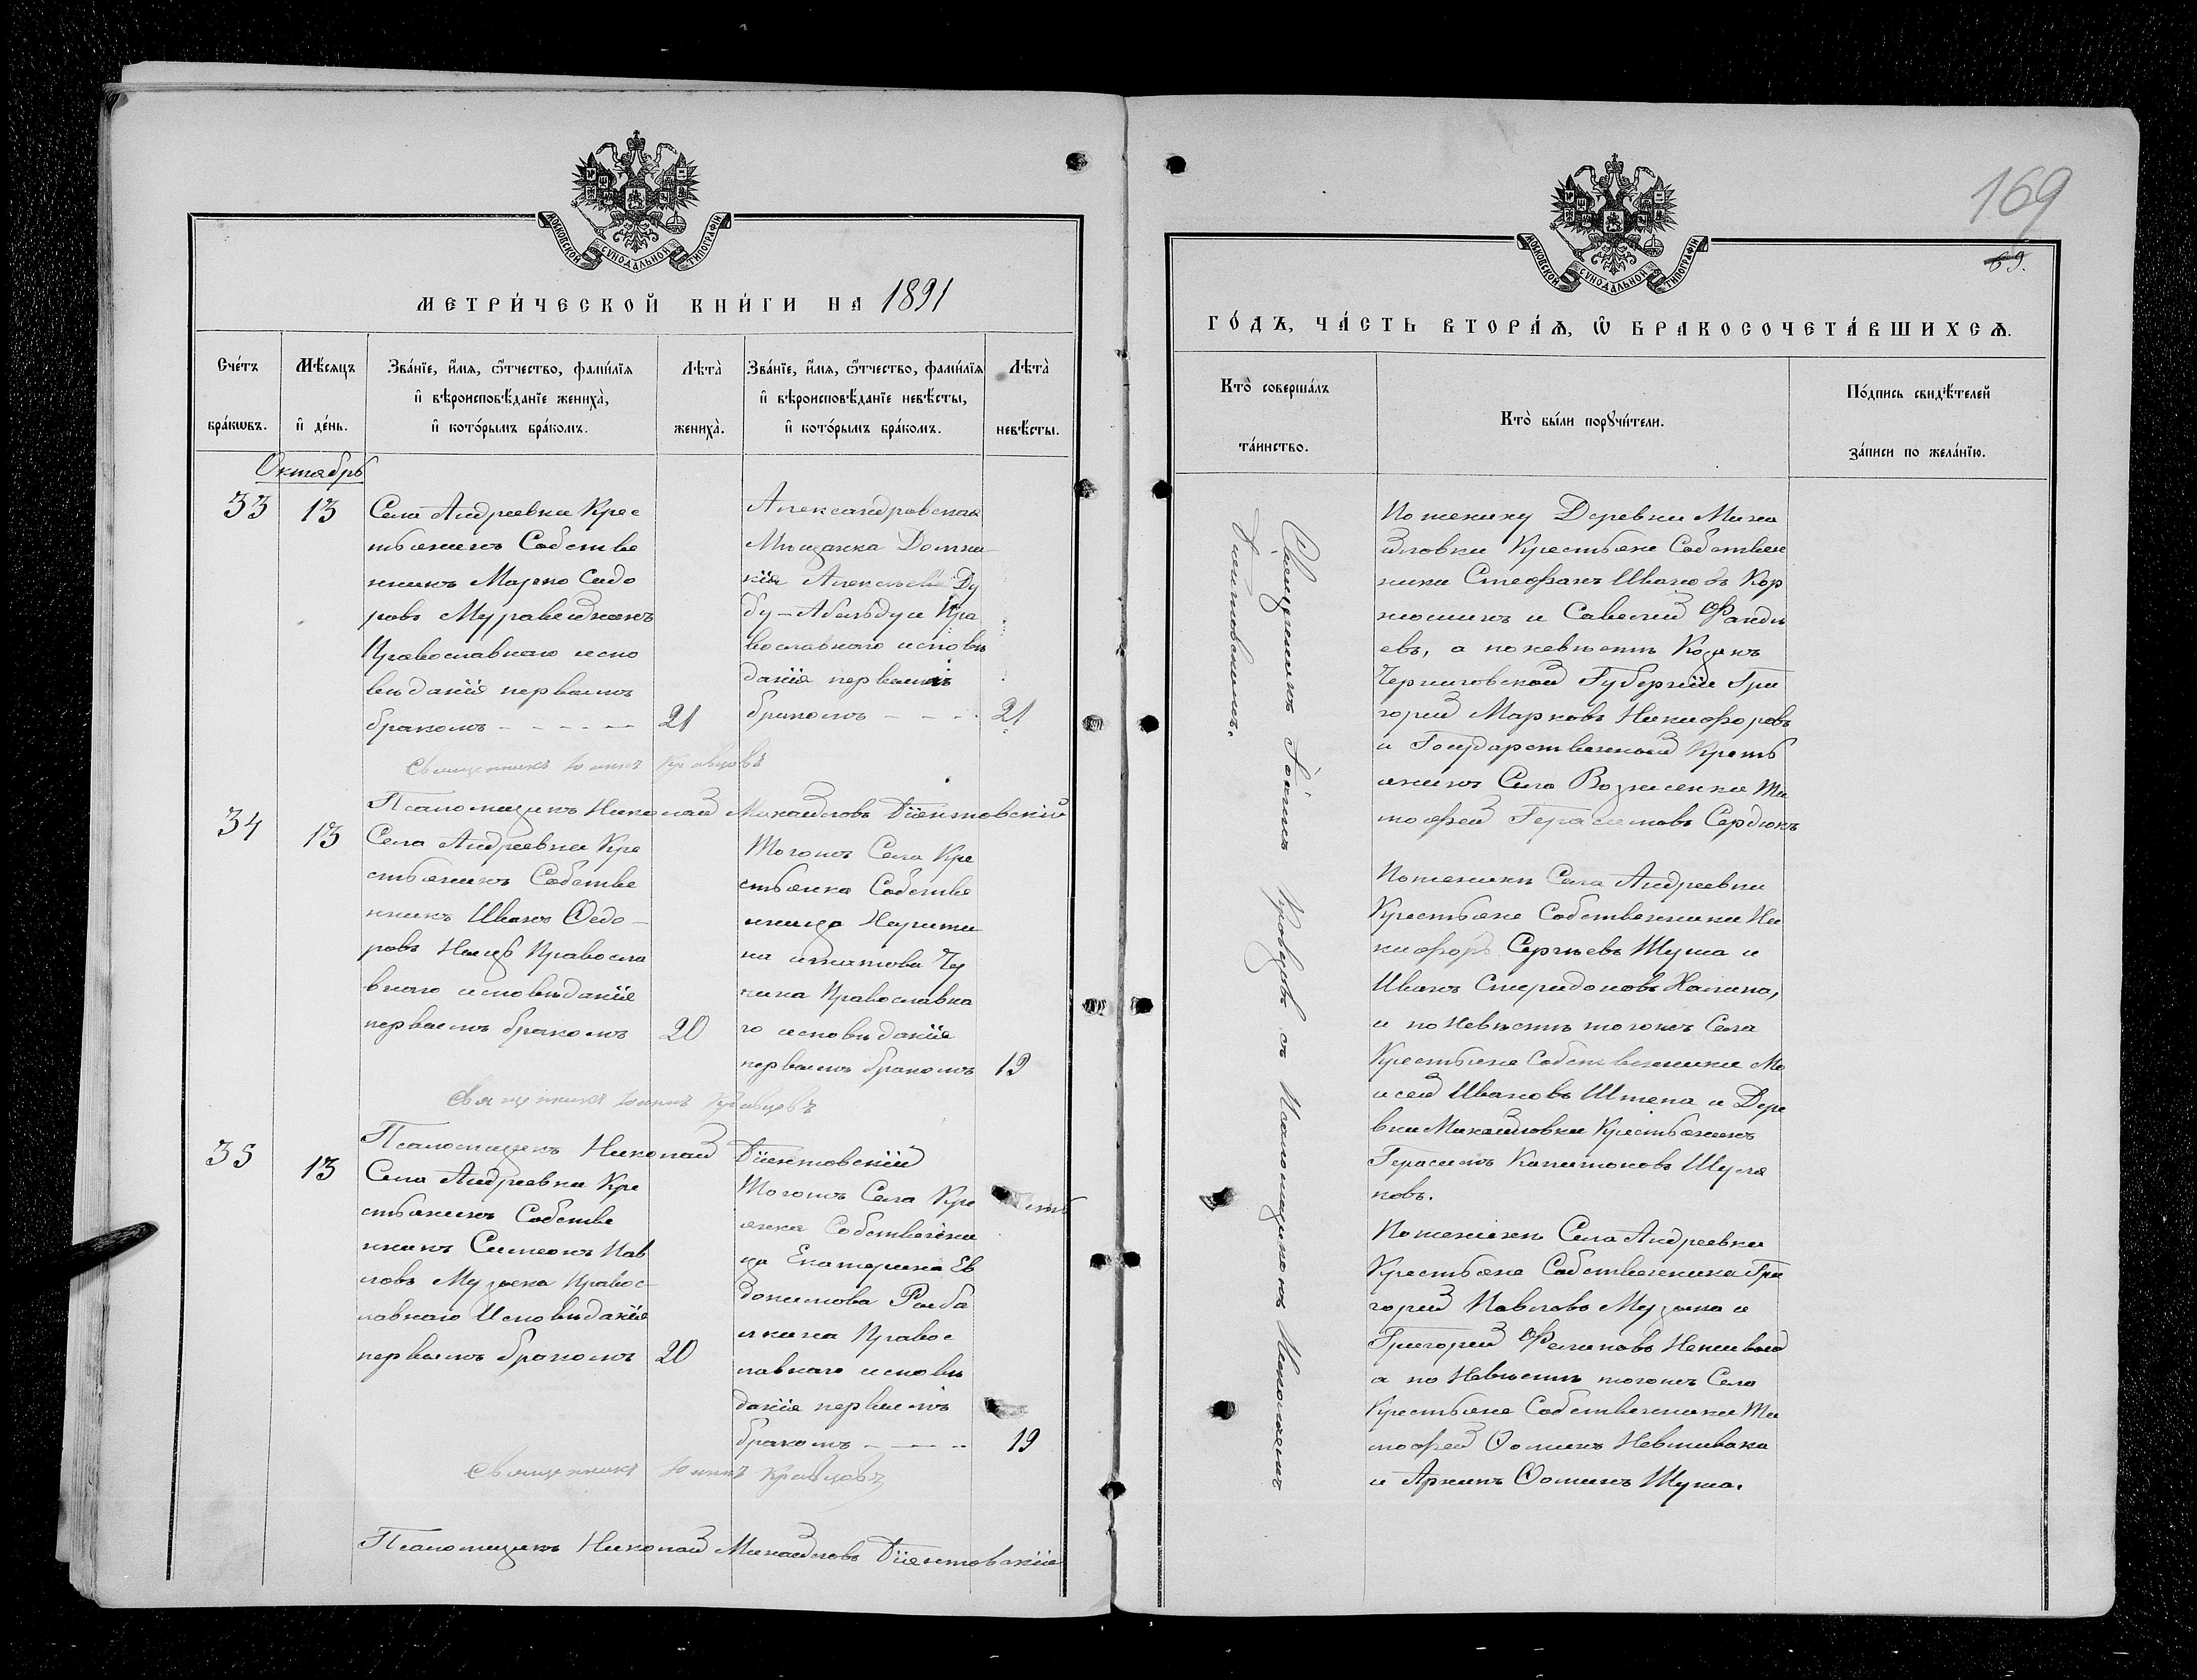 МОСКОВСКОЙ СУНОДАЛЬНОЙ ТИПОГРАФІИ
МЕТРИ́ЧЕСКОЙ КНИ́ГИ НА 1891
Сче́тъ
бра́кѡвъ.
Мѣ́сяцъ
и҆ де́нь.
Зва́нїе, и҆́мя, ѻ҆́тчество, фами́лїя
и҆ вѣроисповѣ́данїе жениха̀,
и҆ кото́рымъ бра́комъ.
Лѣта̀
жениха̀.
Зва́нїе, и҆́мя, ѻ҆́тчество, фами́лїя
и҆ вѣроисповѣ́данїе невѣ́сты,
и҆ кото́рымъ бра́комъ.
Лѣта̀
невѣ́сты.
Октябрь
33
13
Села Андреевки Крес
тьянинъ Собстве
нникъ Марко Сидо
ровъ
Православнаго испо
вѣданія первымъ
бракомъ - - - - -
21
Александровская
Мѣщанка Домни
кія Алексѣева Ду
бу-Абельду и Пра
вославнаго исповѣ
данія первымъ
бракомъ - - - -
21
Священникъ Іоаннъ Кравцовъ
Псаломщикъ Николай Михайловъ Діентовскій
34
13
Села Андреевки Кре
стьянинъ Собстве
нникъ Иванъ Ѳедо-
ровъ Правосла
внаго исповѣданія
первымъ бракомъ
20
Тогожъ Села Кре
стьянка Собстве
нница Харити
на Игнатова
Православна
го исповѣданія
первымъ бракомъ
19
Священникъ Іоаннъ Кравцовъ
Псаломщикъ Николай Діентовскій
35
13
Села Андреевки Кре
стьянинъ Собстве
нникъ Симеонъ Пав
ловъ Музыка Правос
лавнаго Исповѣданія
первымъ бракомъ
20
Тогожъ Села Кре сть
янка Собственни
ца Екатерина Ев
докимова Рыба
лкина Правос
лавнаго исповѣ
данія первымъ
бракомъ - - - -
19
Священникъ Іоаннъ Кравцовъ
Псаломщикъ Николай Михайловъ Діентовскій
169
69.
МОСКОВСКОЙ СУНОДАЛЬНОЙ ТИПОГРАФІИ
ГО́ДЪ, ЧА́СТЬ ВТОРА́Ѧ, Ѡ҆ БРАКОСОЧЕТА́ВШИХСѦ.
Кто̀ соверша́лъ
та́инство.
Кто̀ бы́ли порꙋчи́тели.
По́дпись свидѣ́телей
за́писи по жела́нїю.
Священникъ Іоаннъ Кравцовъ съ Псаломщикомъ Николаемъ
Діентовскимъ.
По жениху Деревни Миха
йловки Крестьяне Собствен
ники Стефанъ Ивановъ Кор
нюшинъ и Савелій Фандѣ
евъ, а по невѣстѣ Козакъ
Черниговской Губерніи Гри
горій Марковъ Никифоровъ
и Государственный Кресть
янинъ Села Вознесенки Ти
мофей Герасимовъ Сердюкъ
По женихѣ Села Андреевки
Крестьяне Собственники Ни
кифоръ Сергѣевъ Шуша и
Иванъ Спиридоновъ Халипа,
и по Невѣстѣ тогожъ Села
Крестьяне Собственники Мо
исей Ивановъ Штепа и Дере
вни Михайловки Крестьянинъ
Герасимъ Капитоновъ Шуля
ковъ.
По женихѣ Села Андреевки
Крестьяне Собственники Гри
горій Павловъ Музыка и
Григорій Филиповъ Неживой
а по Невѣстѣ тогожъ Села
Крестьяне Собственники Ти
мофей Ѳоминъ Невшивака
и Архипъ Ѳоминъ Шуша.